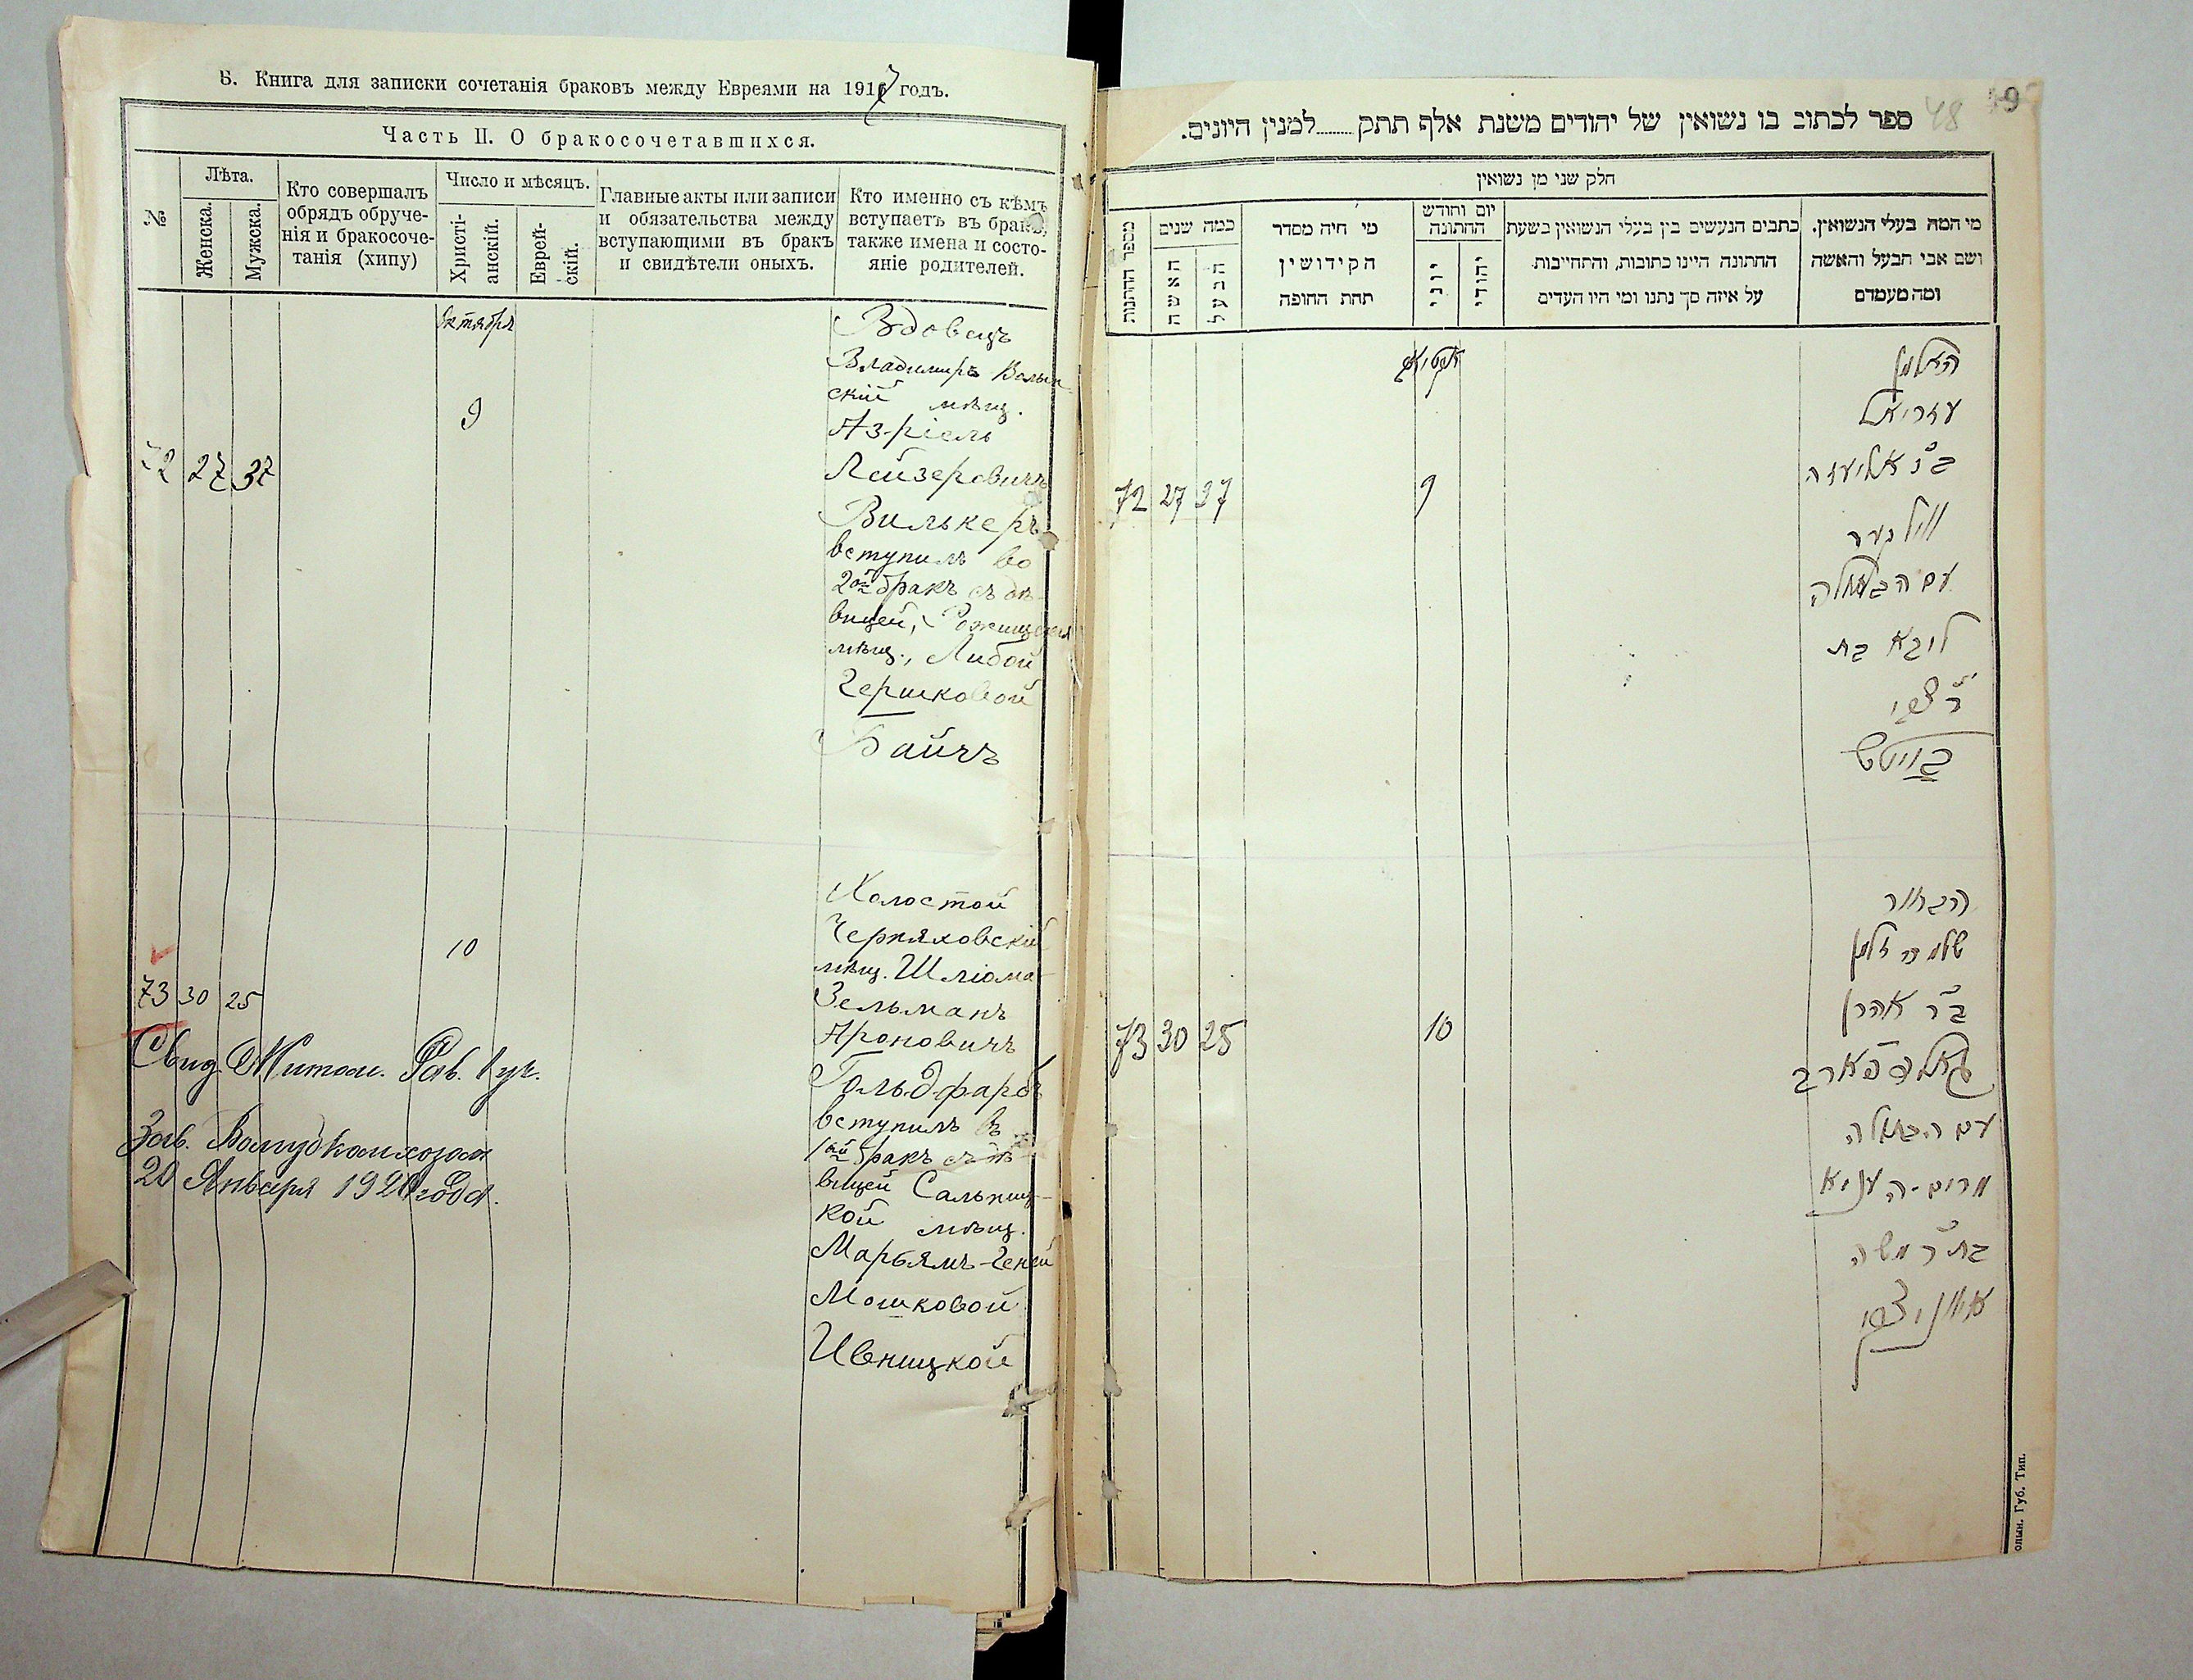 Б. Книга для записки сочетанія браковъ между Евреями на 1917 годъ.
Часть II. О бракосочетавшихся.
№
Лѣта.
Женска.
Мужска.
Кто совершалъ
обрядъ обруче-
нія и бракосоче-
танія (хипу)
Число и мѣсяцъ.
Христі-
анскій.
Еврей-
скій.
Главные акты или записи
и обязательства между
вступающими въ бракъ
и свидѣтели оныхъ.
Кто именно съ кѣмъ
вступаетъ въ бракъ,
также имена и состо-
яніе родителей.
Октября
9
72 27 37
Вдовецъ
Владимиръ Волын
скій мѣщ.
Аз-ріель
Лейзеровичъ
Вилькеръ
вступилъ во
2ой бракъ съ дѣ-
вицей, Рожищской
мѣщ., Либой
Гершковой
Байчъ
10
73 30 25
Холостой
Черняховскій
мѣщ. Шліома-
Зельманъ
Ароновичъ
Гольдфарбъ
вступилъ въ
1ый бракъ съ дѣ-
вицей Сальниц-
кой мѣщ.
Марьямъ-Геней
Мошковой
Ивницкой
Свид. Житом. Рав. 1 уч.
Зав.
20 Января 1920 года.
48
9
ספר לכתוב בו נשואין של יהודים משנת אלף תתק........למנין היונים.
חלק שני מן נשואין
מי המה בעלי הנשואין.
ושם אבי הבעל והאשה
ומה מעמדם
כתבים הנעשים בין בעלי הנשואין בשעת
החתונה היינו כתובות, והתחייבות
על איזה סך נתנו ומי היו העדים
יום וחודש
החתונה
יהודי
יוני
מי היה מסדר
הקידושין
תחת החופה
כמה שנים
הבעל
האשה
מספר החתונות
72 27 37
9
האלמן
עזריאל
ב״ר אליעזר
ווילקער
עם הבתולה
ליבא בת
ר׳ צבי
בייטש
73 30 25
10
הבחור
שלמה זלמן
ב״ר אהרן
גאלדפארב
עם הבתולה
מרים-העניא
בת״ר משה
איווניצקי
олын. Губ. Тип.